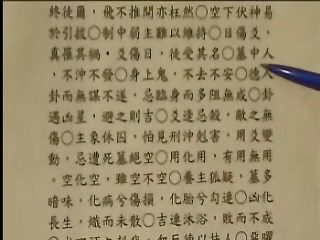 終徒爾，飛不推開亦枉然○空下伏神易
於引拔○制中弱主難以維持○日傷爻，
真罹其禍，爻傷日，徒受其名○墓中人
，不沖不發○身上鬼，不去不安○德入
卦而無謀不遂，忌臨身而多阻無成○卦
遇凶星，避之則吉○爻逢忌殺，敵之無
傷○主象休囚，怕見刑沖剋害，用爻變
動，忌遭死墓絕空○用化用，有用無用
。空化空，雖空不空○養主狐疑，墓多
暗味，化病兮傷損，化胎兮勾連○凶化
長生，熾而未散○吉連沐浴，敗而不成
反德以扶人○惡曜